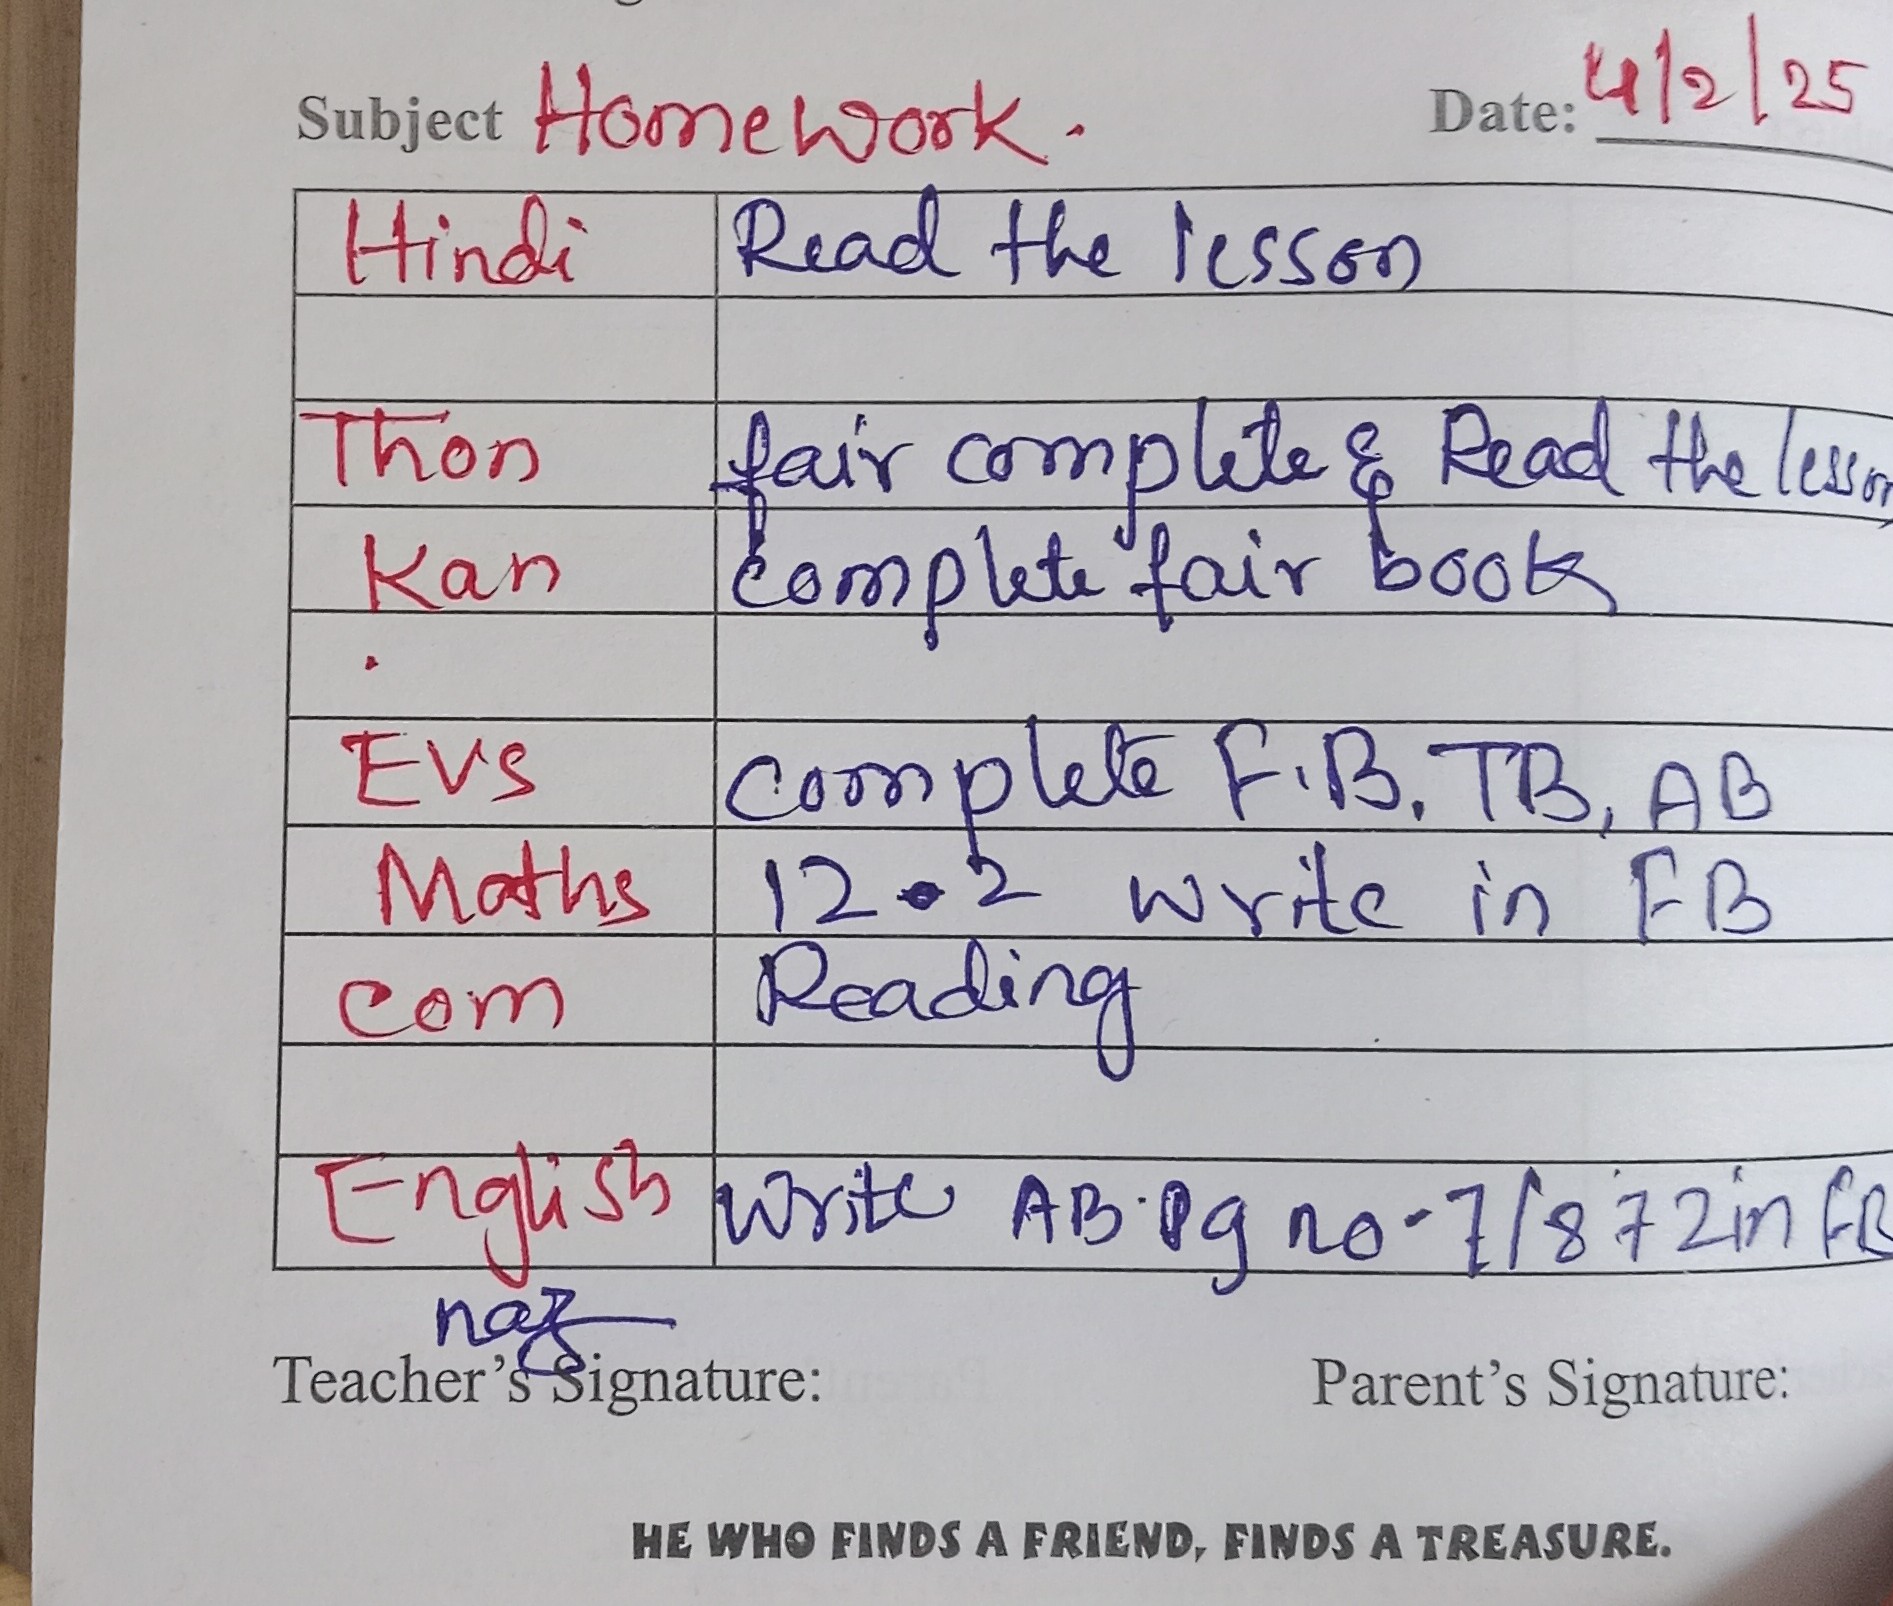 Subject Homework.
Date: 4/2/25
Hindi Read the lesson
Thon fair complete & Read the lesson
Kan complete fair book
EVS complete F.B, TB, AB
Maths 12.2 write in FB
com Reading
English Write AB Pg no-71/8 72 in FB
naz
Teacher's Signature: Parent's Signature:
HE WHO FINDS A FRIEND, FINDS A TREASURE.